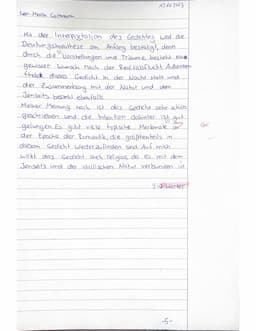 Mit der Interpretation des Gedichtes wird die
Deutungshypothese am Anfang bestätigt, denn
durch die Vorstellungen und Träume besteht ein
gewisser Wunsch nach der Realitätsflucht. Außerdem
findet dieses Gedicht in der Nacht statt und
der Zusammenhang mit der Natur und dem
Jenseits besteht ebenfalls.
Meiner Meinung nach ist das Gedicht sehr schön
geschrieben und die Intention dahinter ist gut
gelungen. Es gibt viele typische Merkmale
der Epoche der Romantik, die größtenteils in
diesem Gedicht wiederzufinden sind. Auf mich
wirkt das Gedicht auch religiös, da es mit dem
Jenseits und der idyllischen Natur verbunden ist
-5-